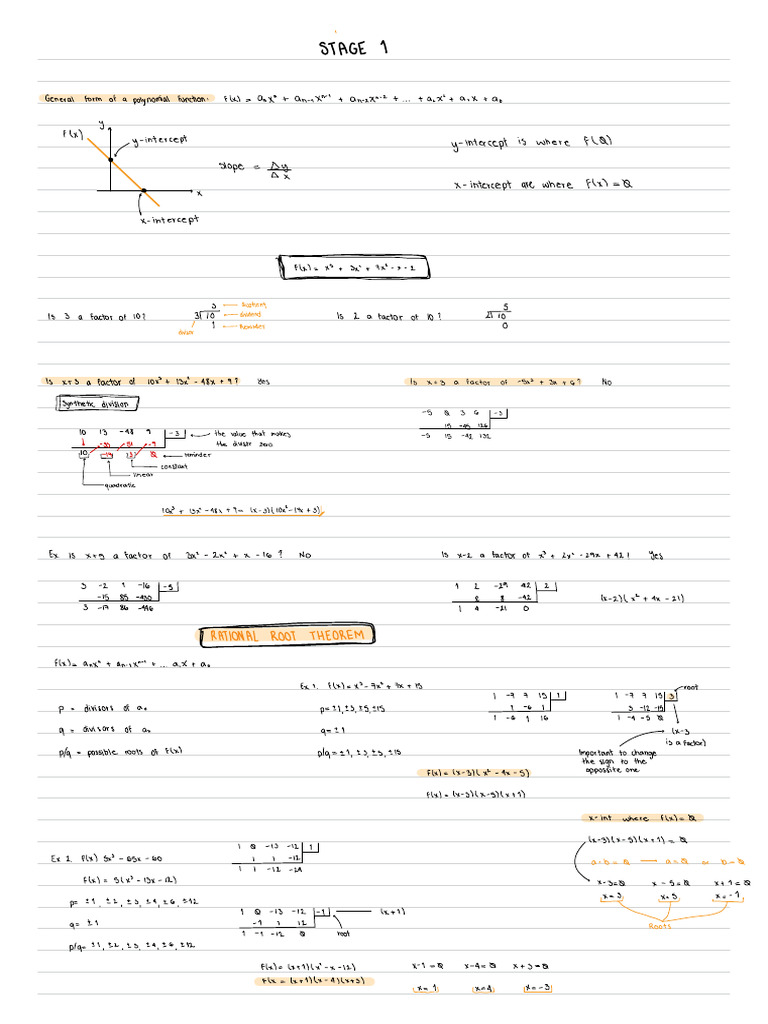 STAGE 1
General form of a polynomial function: F(x) = aₙxⁿ + aₙ₋₁xⁿ⁻¹ + aₙ₋₂xⁿ⁻² + ... + a₂x² + a₁x + a₀
F(x)
y
y-intercept
x
x-intercept
slope = Δy/Δx
y-intercept is where F(0)
x-intercept are where F(x) = 0
Is 3 a factor of 10?
3
3 10
1
dividend
Reminder
Is 2 a factor of 10?
5
2 10
0
Is x+3 a factor of 10x³ + 13x² - 48x + 9? Yes
Synthetic division
10 13 -48 9 -3
the value that makes
the divisor zero
reminder
constant
linear
quadratic
Is x+3 a factor of -5x³ + 3x + 6? No
-5 0 3 6 -3
15 -45 126
-5 15 -42 132
10x³ + 13x² - 48x + 9 = (x-3)(10x² - 17x + 3)
Ex is x+5 a factor of 3x³ - 2x² + x - 16? No
3 -2 1 -16 -5
-15 85 -430
3 -17 86 -446
Is x-2 a factor of x³ + 2x² - 29x + 42! Yes
1 2 -29 42 2
2 8 -42
1 4 -21 0
(x-2)(x² + 4x - 21)
RATIONAL ROOT THEOREM
F(x) = aₙxⁿ + aₙ₋₁xⁿ⁻¹ + ... a₁x + a₀
p = divisors of a₀
q = divisors of aₙ
p/q = possible roots of F(x)
Ex 1. F(x) = x³ - 7x² + 7x + 15
p = ±1, ±3, ±5, ±15
q = ±1
p/q = ±1, ±3, ±5, ±15
1 -7 7 15 1
1 -6 1
1 -6 1 16
1 -7 7 15 3
3 -12 -15
1 -4 -5 0
root
(x-3
is a factor)
Important to change
the sign to the
oppossite one
F(x) = (x-3)(x² - 4x - 5)
F(x) = (x-3)(x-5)(x+1)
x-int where F(x) = 0
(x-3)(x-5)(x+1) = 0
a·b = 0 — a = 0 or b = 0
x-3=0 x-5=0 x+1=0
x=3 x=5 x=-1
Roots
Ex 2. F(x) 5x³ - 65x - 60
F(x) = 5(x³ - 13x - 12)
p = ±1, ±2, ±3, ±4, ±6, ±12
q = ±1
p/q = ±1, ±2, ±3, ±4, ±6, ±12
1 0 -13 -12 1
1 1 -12
1 1 -12 -24
1 0 -13 -12 -1
-1 1 12
1 -1 -12 0
(x+1)
root
F(x) = (x+1)(x² - x - 12)
F(x = (x+1)(x-4)(x+3)
x-1=0 x-4=0 x+3=0
x=1 x=4 x=-3